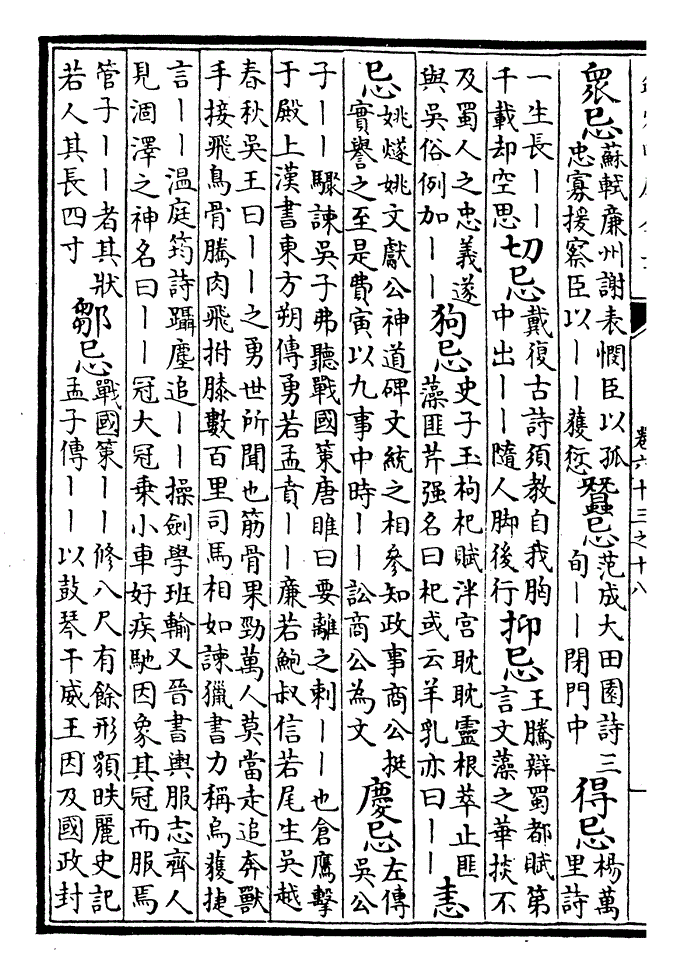 卷六十三之十八
衆忌
蘇軾廉州謝表憫臣以孤
忠寡援察臣以丨丨獲愆
蠶忌
范成大田園詩三
旬丨丨閉門中
得忌
楊萬
里詩
一生長丨丨
千載却空思
切忌
戴復古詩須教自我胸
中出丨丨隨人脚後行
抑忌
王騰辯蜀都賦第
言文藻之華掞不
及蜀人之忠義遂
與吳俗例加丨丨
狗忌
史子玉枸杞賦泮宮耽耽靈根萃止匪
藻匪芹强名曰杞或云羊乳亦曰丨丨
恚
忌
姚燧姚文獻公神道碑文統之相參知政事商公挺
實譽之至是費寅以九事中時丨丨訟商公為文
慶忌
左傳
吳公
子丨丨驟諫吳子弗聽戰國策唐雎曰要離之刺丨丨也倉鷹擊
于殿上漢書東方朔傳勇若孟賁丨丨廉若鮑叔信若尾生吳越
春秋吳王曰丨丨之勇世所聞也筋骨果勁萬人莫當走追奔獸
手接飛鳥骨騰肉飛拊膝數百里司馬相如諫獵書力稱烏獲捷
言丨丨温庭筠詩躡塵追丨丨操劍學班輸又晉書輿服志齊人
見涸澤之神名曰丨丨冠大冠乗小車好疾馳因象其冠而服焉
管子丨丨者其狀
若人其長四寸
鄒忌
戰國策丨丨修八尺有餘形貎昳麗史記
孟子傳丨丨以鼓琴干威王因及國政封